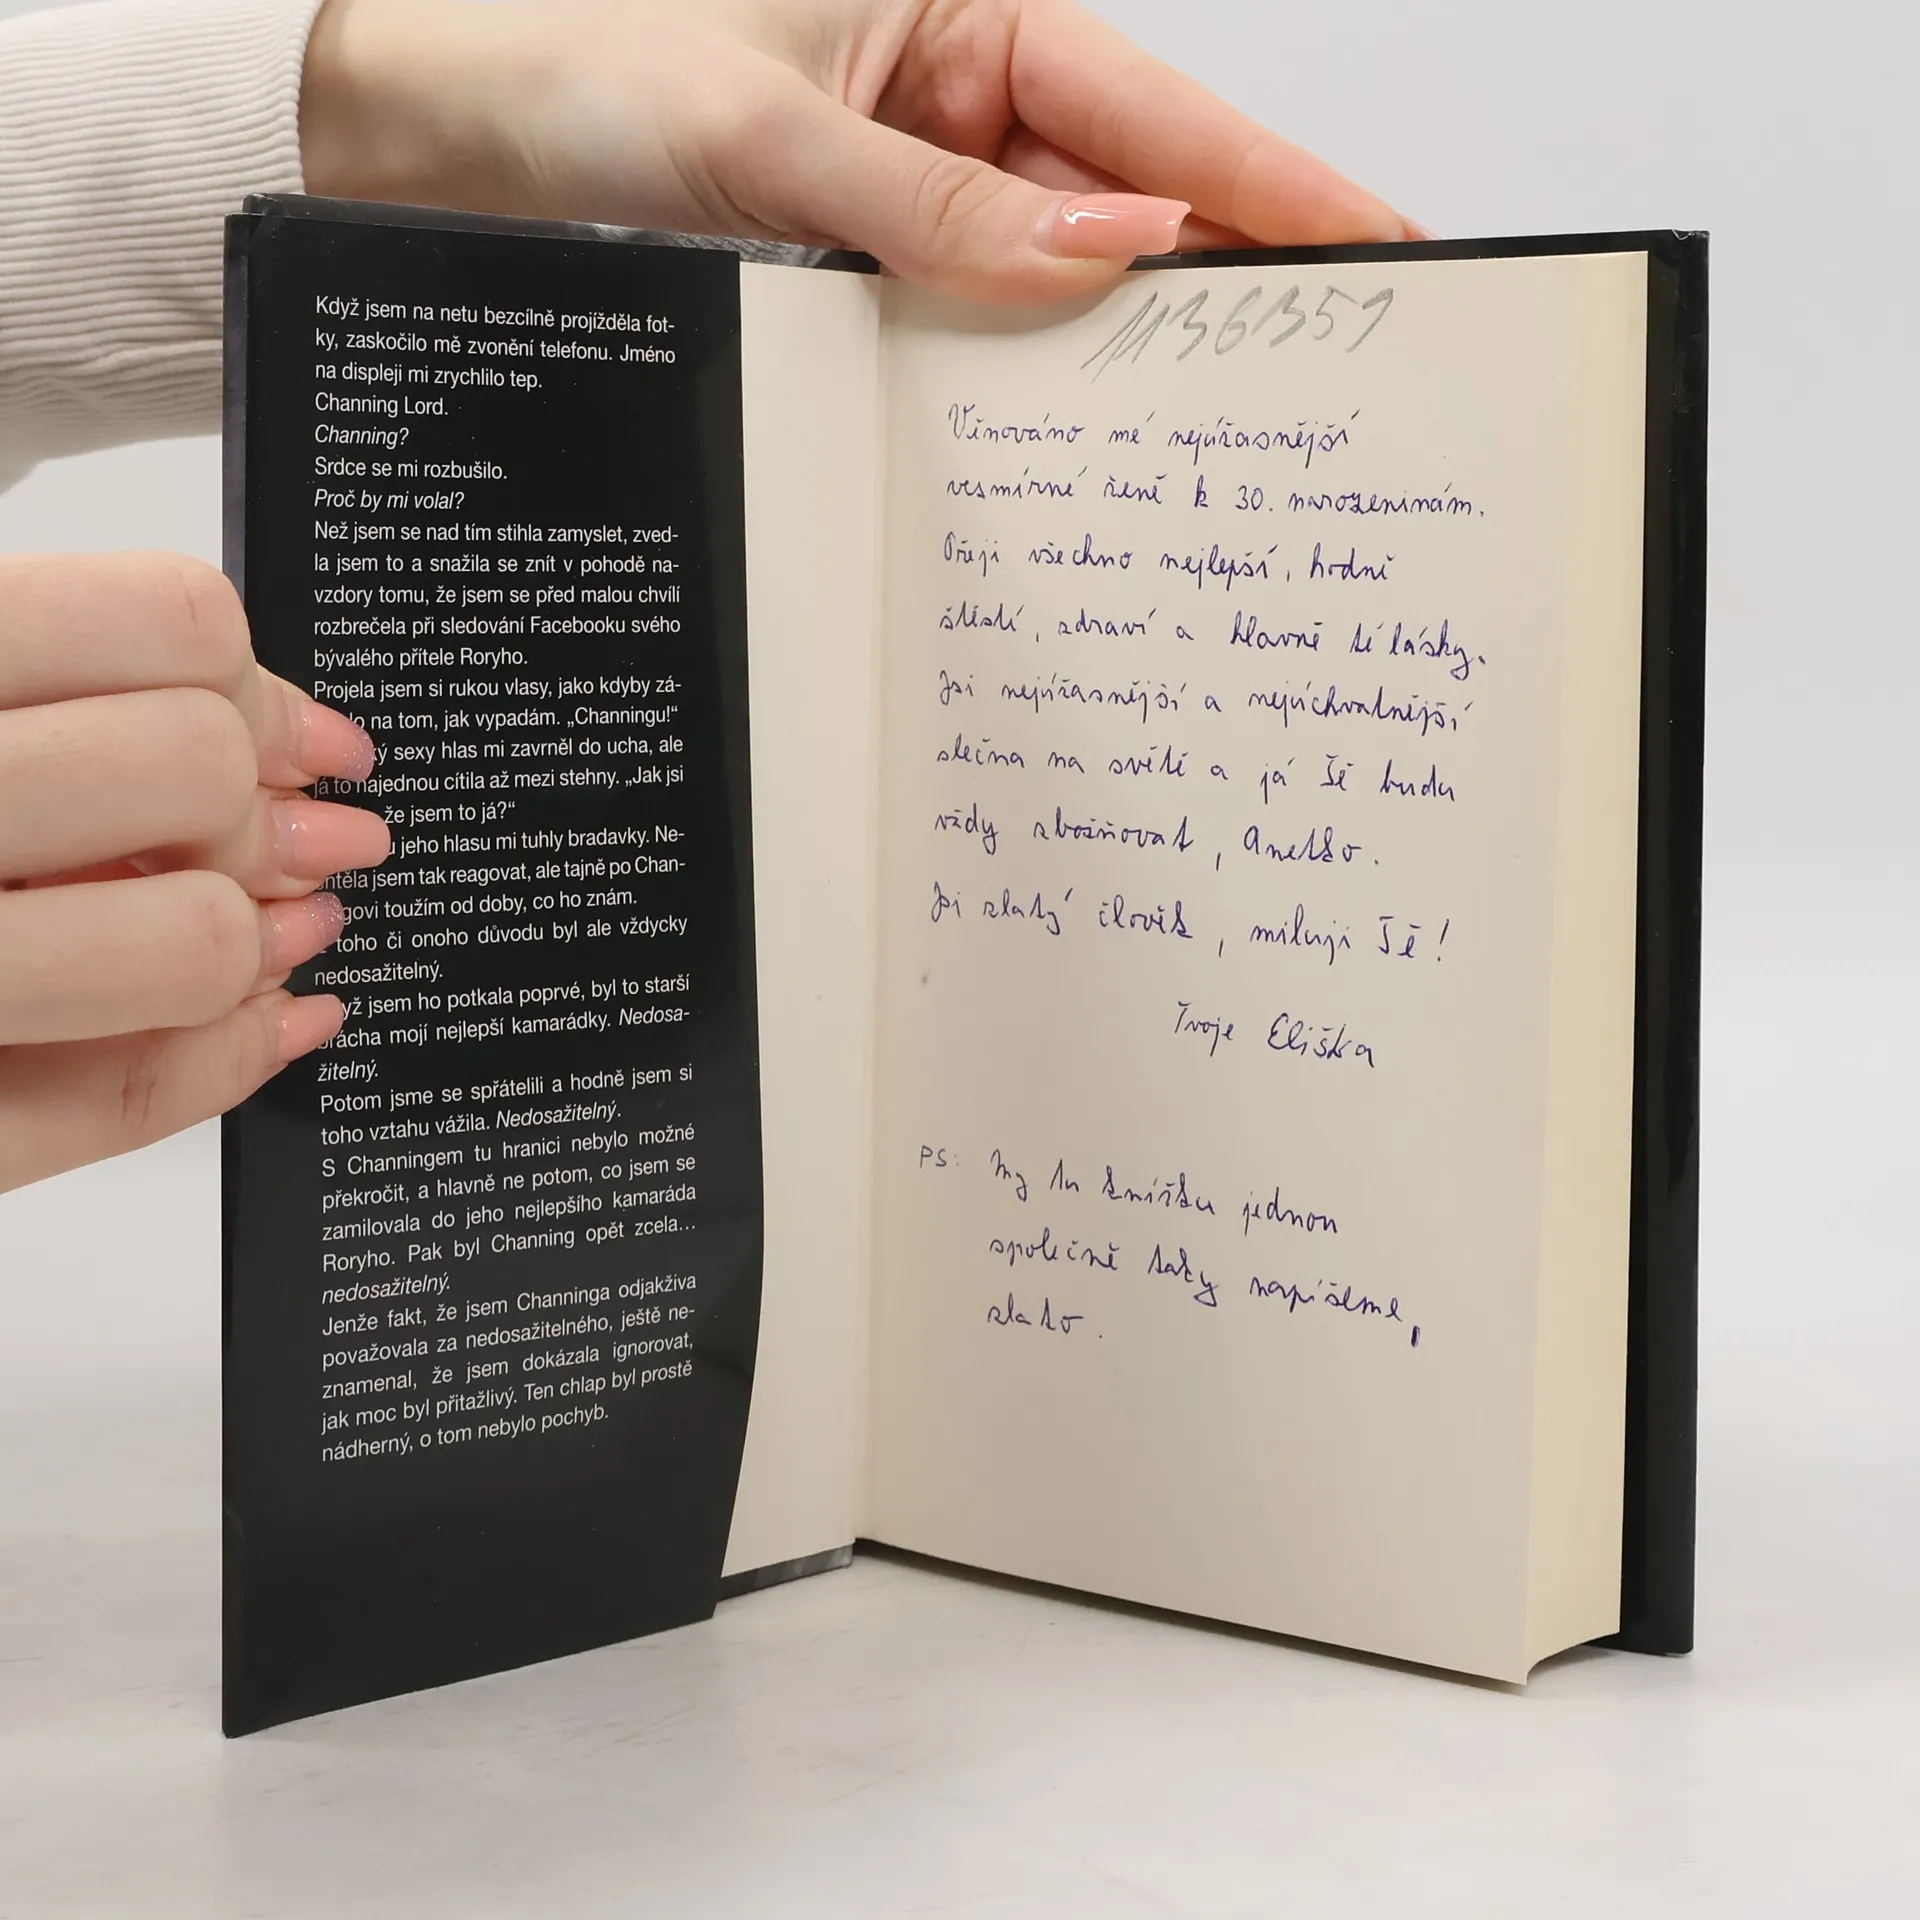 Když jsem na netu bezcílně projížděla fot-
ky, zaskočilo mě zvonění telefonu. Jméno
na displeji mi zrychlilo tep.
Channing Lord.
Channing?
Srdce se mi rozbušilo.
Proč by mi volal?
Než jsem se nad tím stihla zamyslet, zved-
la jsem to a snažila se znít v pohodě na-
vzdory tomu, že jsem se před malou chvílí
rozbrečela při sledování Facebooku svého
bývalého přítele Roryho.
Projela jsem si rukou vlasy, jako kdyby zá-
na tom, jak vypadám. „Channingu!“
sexy hlas mi zavrněl do ucha, ale
já to najednou cítila až mezi stehny. „Jak jsi
že jsem to já?“
jeho hlasu mi tuhly bradavky. Ne-
chtěla jsem tak reagovat, ale tajně po Chan-
ningovi toužím od doby, co ho znám.
toho či onoho důvodu byl ale vždycky
nedosažitelný.
Když jsem ho potkala poprvé, byl to starší
brácha mojí nejlepší kamarádky. Nedosa-
žitelný.
Potom jsme se spřátelili a hodně jsem si
toho vztahu vážila. Nedosažitelný.
S Channingem tu hranici nebylo možné
překročit, a hlavně ne potom, co jsem se
zamilovala do jeho nejlepšího kamaráda
Roryho. Pak byl Channing opět zcela…
nedosažitelný.
Jenže fakt, že jsem Channinga odjakživa
považovala za nedosažitelného, ještě ne-
znamenal, že jsem dokázala ignorovat,
jak moc byl přitažlivý. Ten chlap byl prostě
nádherný, o tom nebylo pochyb.
1136359
Věnováno mé nejúžasnější
vesmírné ženě k 30. narozeninám.
Přeji všechno nejlepší, hodně
štěstí, zdraví a hlavně té lásky.
Jsi nejúžasnější a nejúchvatnější
slečna na světě a já Tě budu
vždy zbožňovat, Anetko.
Jsi zlatý člověk, miluji Tě!
Tvoje Eliška
PS: My tu knížku jednou
společně taky napíšeme,
zlato.